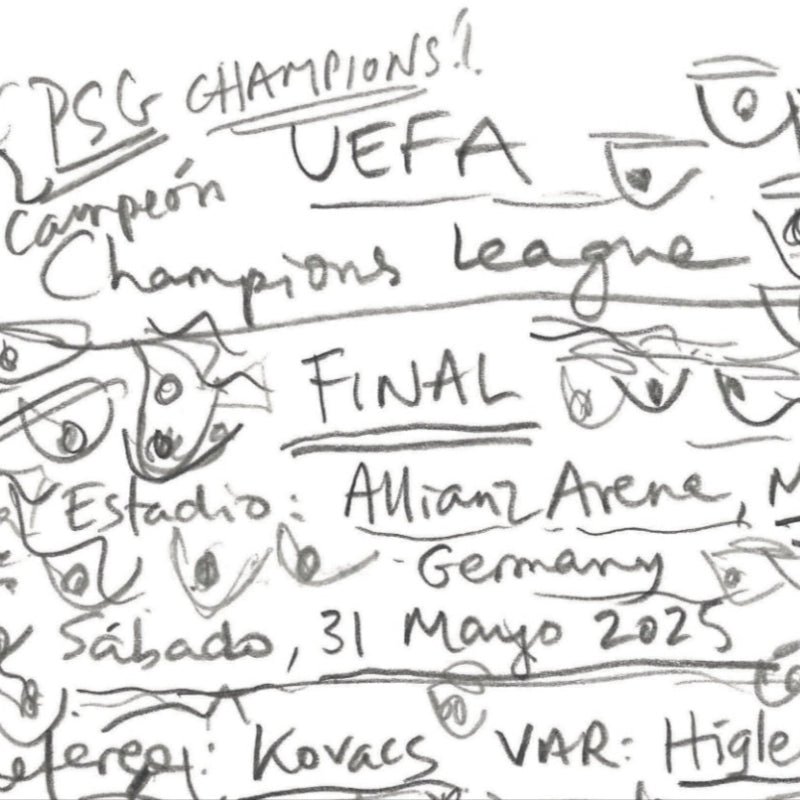 PSG CHAMPIONS!!
UEFA
Campeón
Champions League
FINAL
Estadio: Allianz Arena, M
Germany
Sábado, 31 Mayo 2025
Referee: Kovacs VAR: Higle